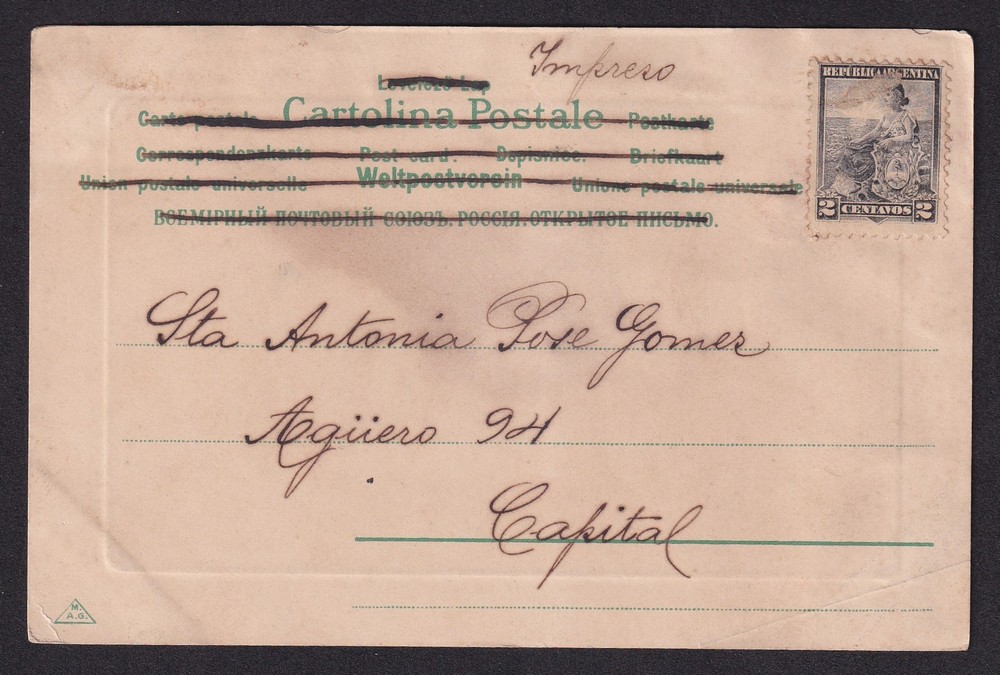 Impreso
Levelező-Lap
Carte postale Cartolina Postale Postkarte
Correspondenzkarte Post-card. Dopisnice. Briefkaart
Union postale universelle Weltpostverein Unione postale universale
ВСЕМІРНЫЙ ПОЧТОВЫЙ СОЮЗЪ. РОССІЯ. ОТКРЫТОЕ ПИСЬМО.
REPÚBLICA ARGENTINA
2 CENTAVOS 2
Sta Antonia Pose Gomez
Agüero 94
Capital
M.
A.G.